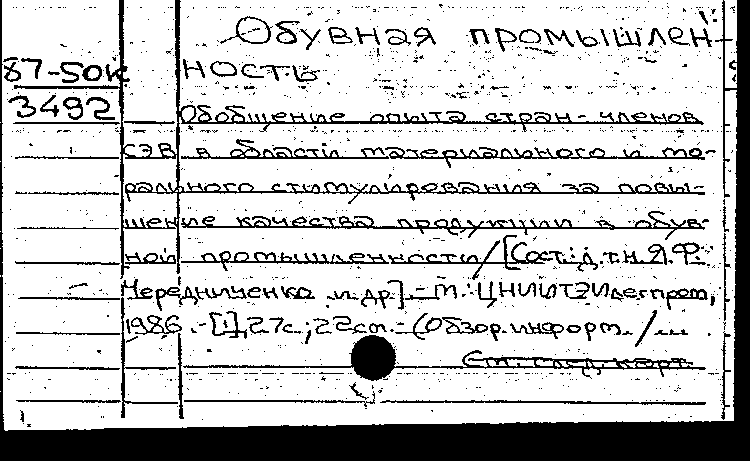 Обувная промышлен-
87-50к ность
3492
Обобщение опыта стран-членов
СЭВ в области материального и мо-
рального стимулирования за повы-
шение качества продукции в обув-
ной промышленности/[Сост.: д.т.н. Я.Ф.
Чередниченко и др.].-М.: ЦНИИТЭИлегпром,
1986.-[1],27с.;22см.-(Обзор.информ./...
См. след. карт.